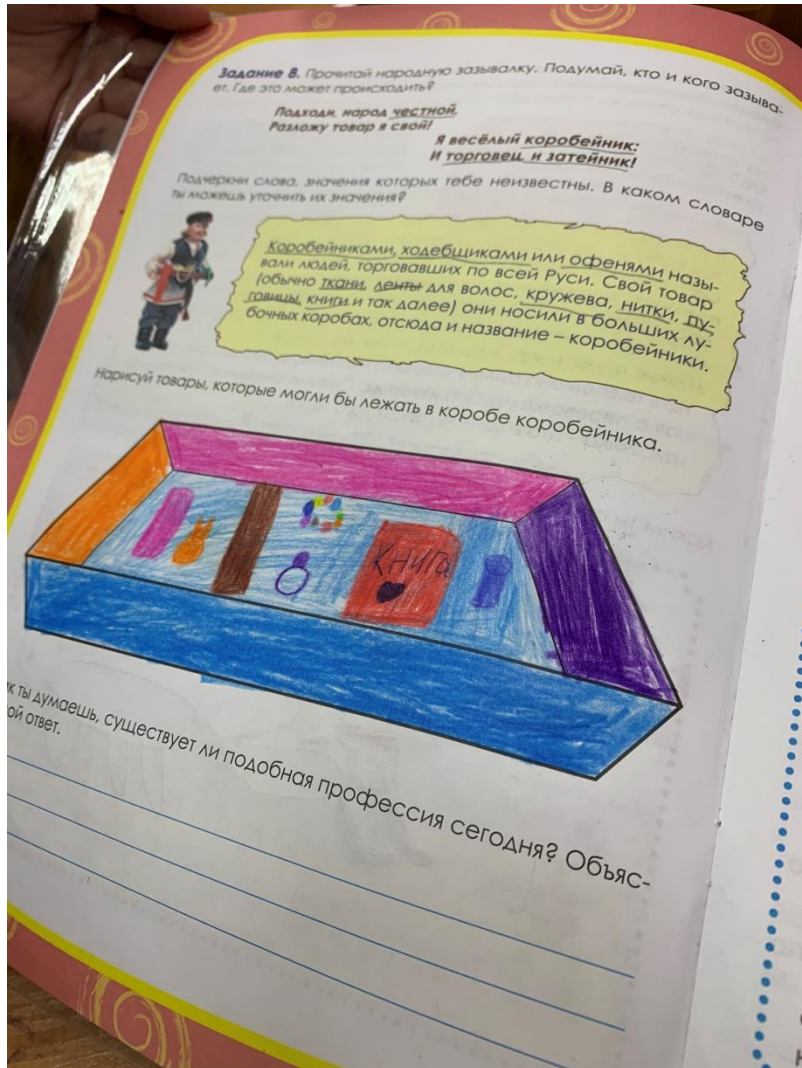 Задание 8. Прочитай народную зазывалку. Подумай, кто и кого зазыва-
ет. Где это может происходить?
Подходи, народ честной,
Разложу товар я свой!
Я весёлый коробейник:
И торговец, и затейник!
Подчеркни слова, значения которых тебе неизвестны. В каком словаре
ты можешь уточнить их значения?
Коробейниками, ходебщиками или офенями назы-
вали людей, торговавших по всей Руси. Свой товар
(обычно ткани, ленты для волос, кружева, нитки, пу-
говицы, книги и так далее) они носили в больших лу-
бочных коробах, отсюда и название – коробейники.
Нарисуй товары, которые могли бы лежать в коробе коробейника.
КНИГа
ты думаешь, существует ли подобная профессия сегодня? Объяс-
ответ.